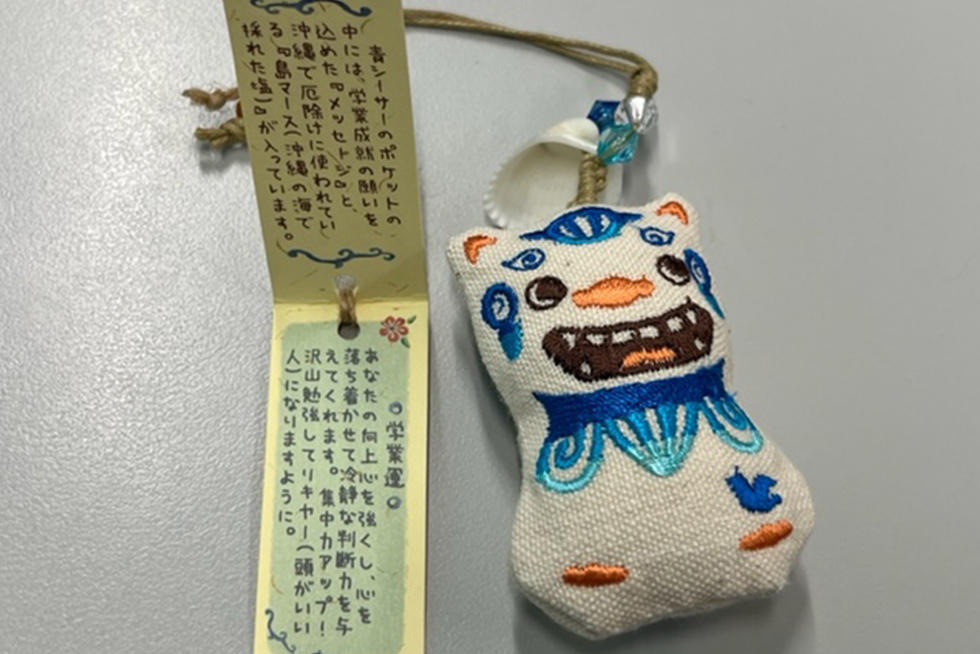 青シーサーのポケットの
中には、学業成就の願いを
込めた『メッセヒトジ』と、
沖縄で厄除けに使われてい
る『島マース(沖縄の海で
採れた塩)』が入っています。
学業運
あなたの向上心を強くし、心を
落ち着かせて冷静な判断力を与
えてくれます。集中力アップ!
沢山勉強してリキヤー(頭がいい
人)になりますように。